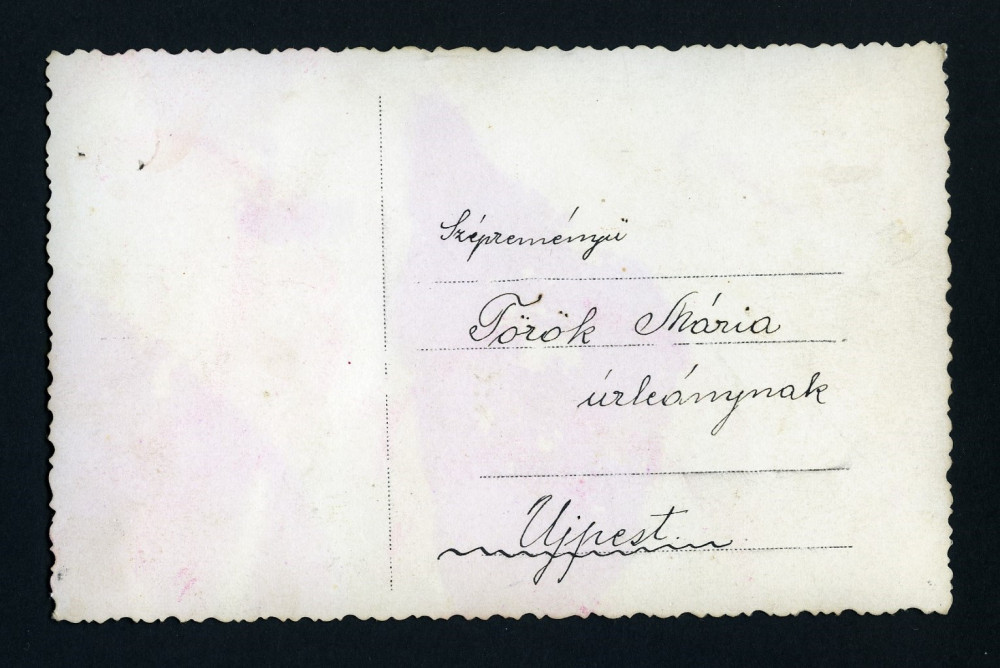 Szépreményü
Török Mária
úrleánynak
Ujpest.